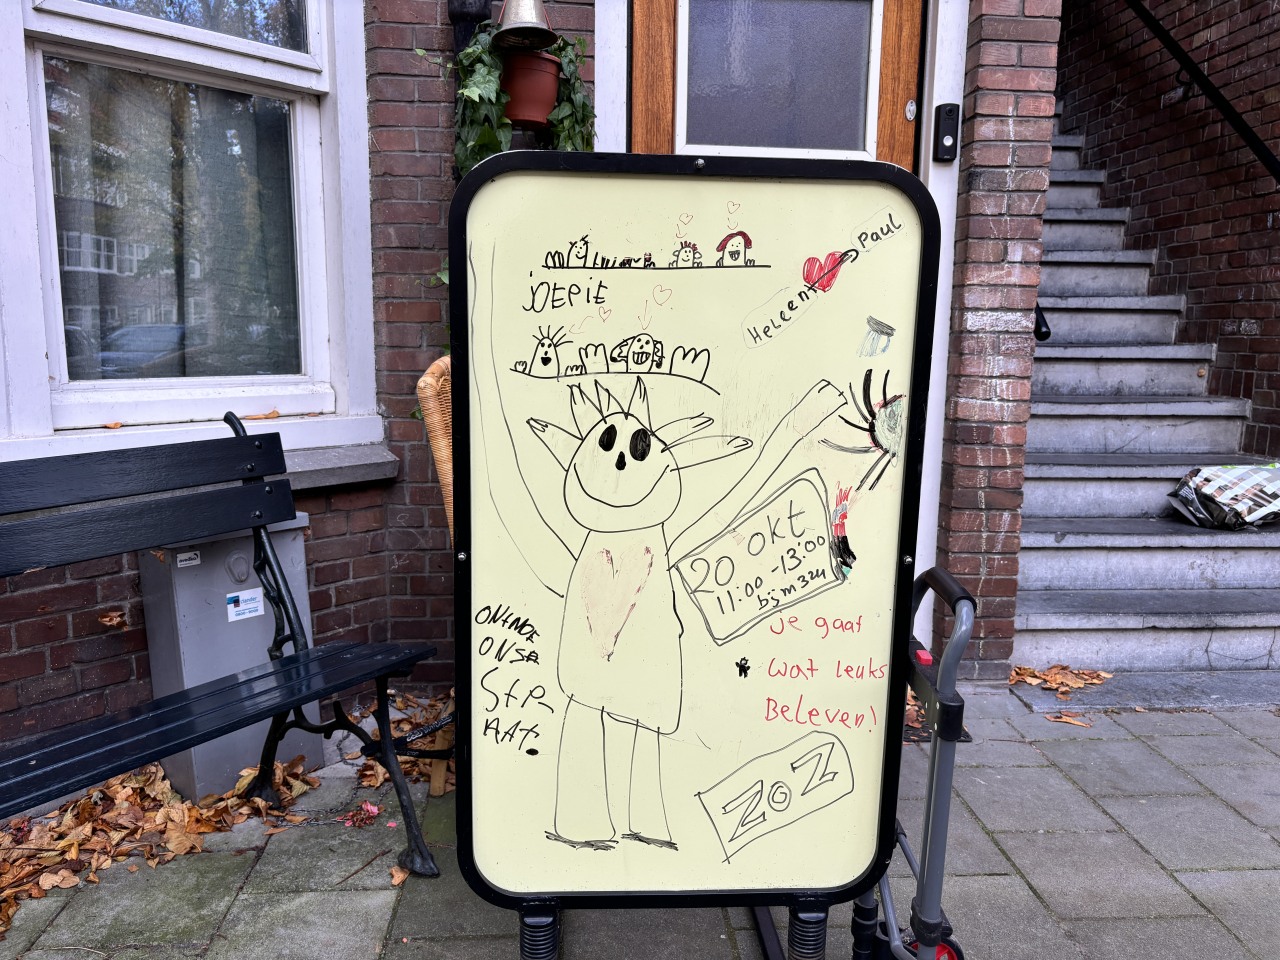 Heleen
Paul
JOEPIE
20 okt
11:00-13:00
bij m 324
ONTMOE
ONSE
STR
AAT.
je gaat
wat leuks
Beleven!
ZOZ